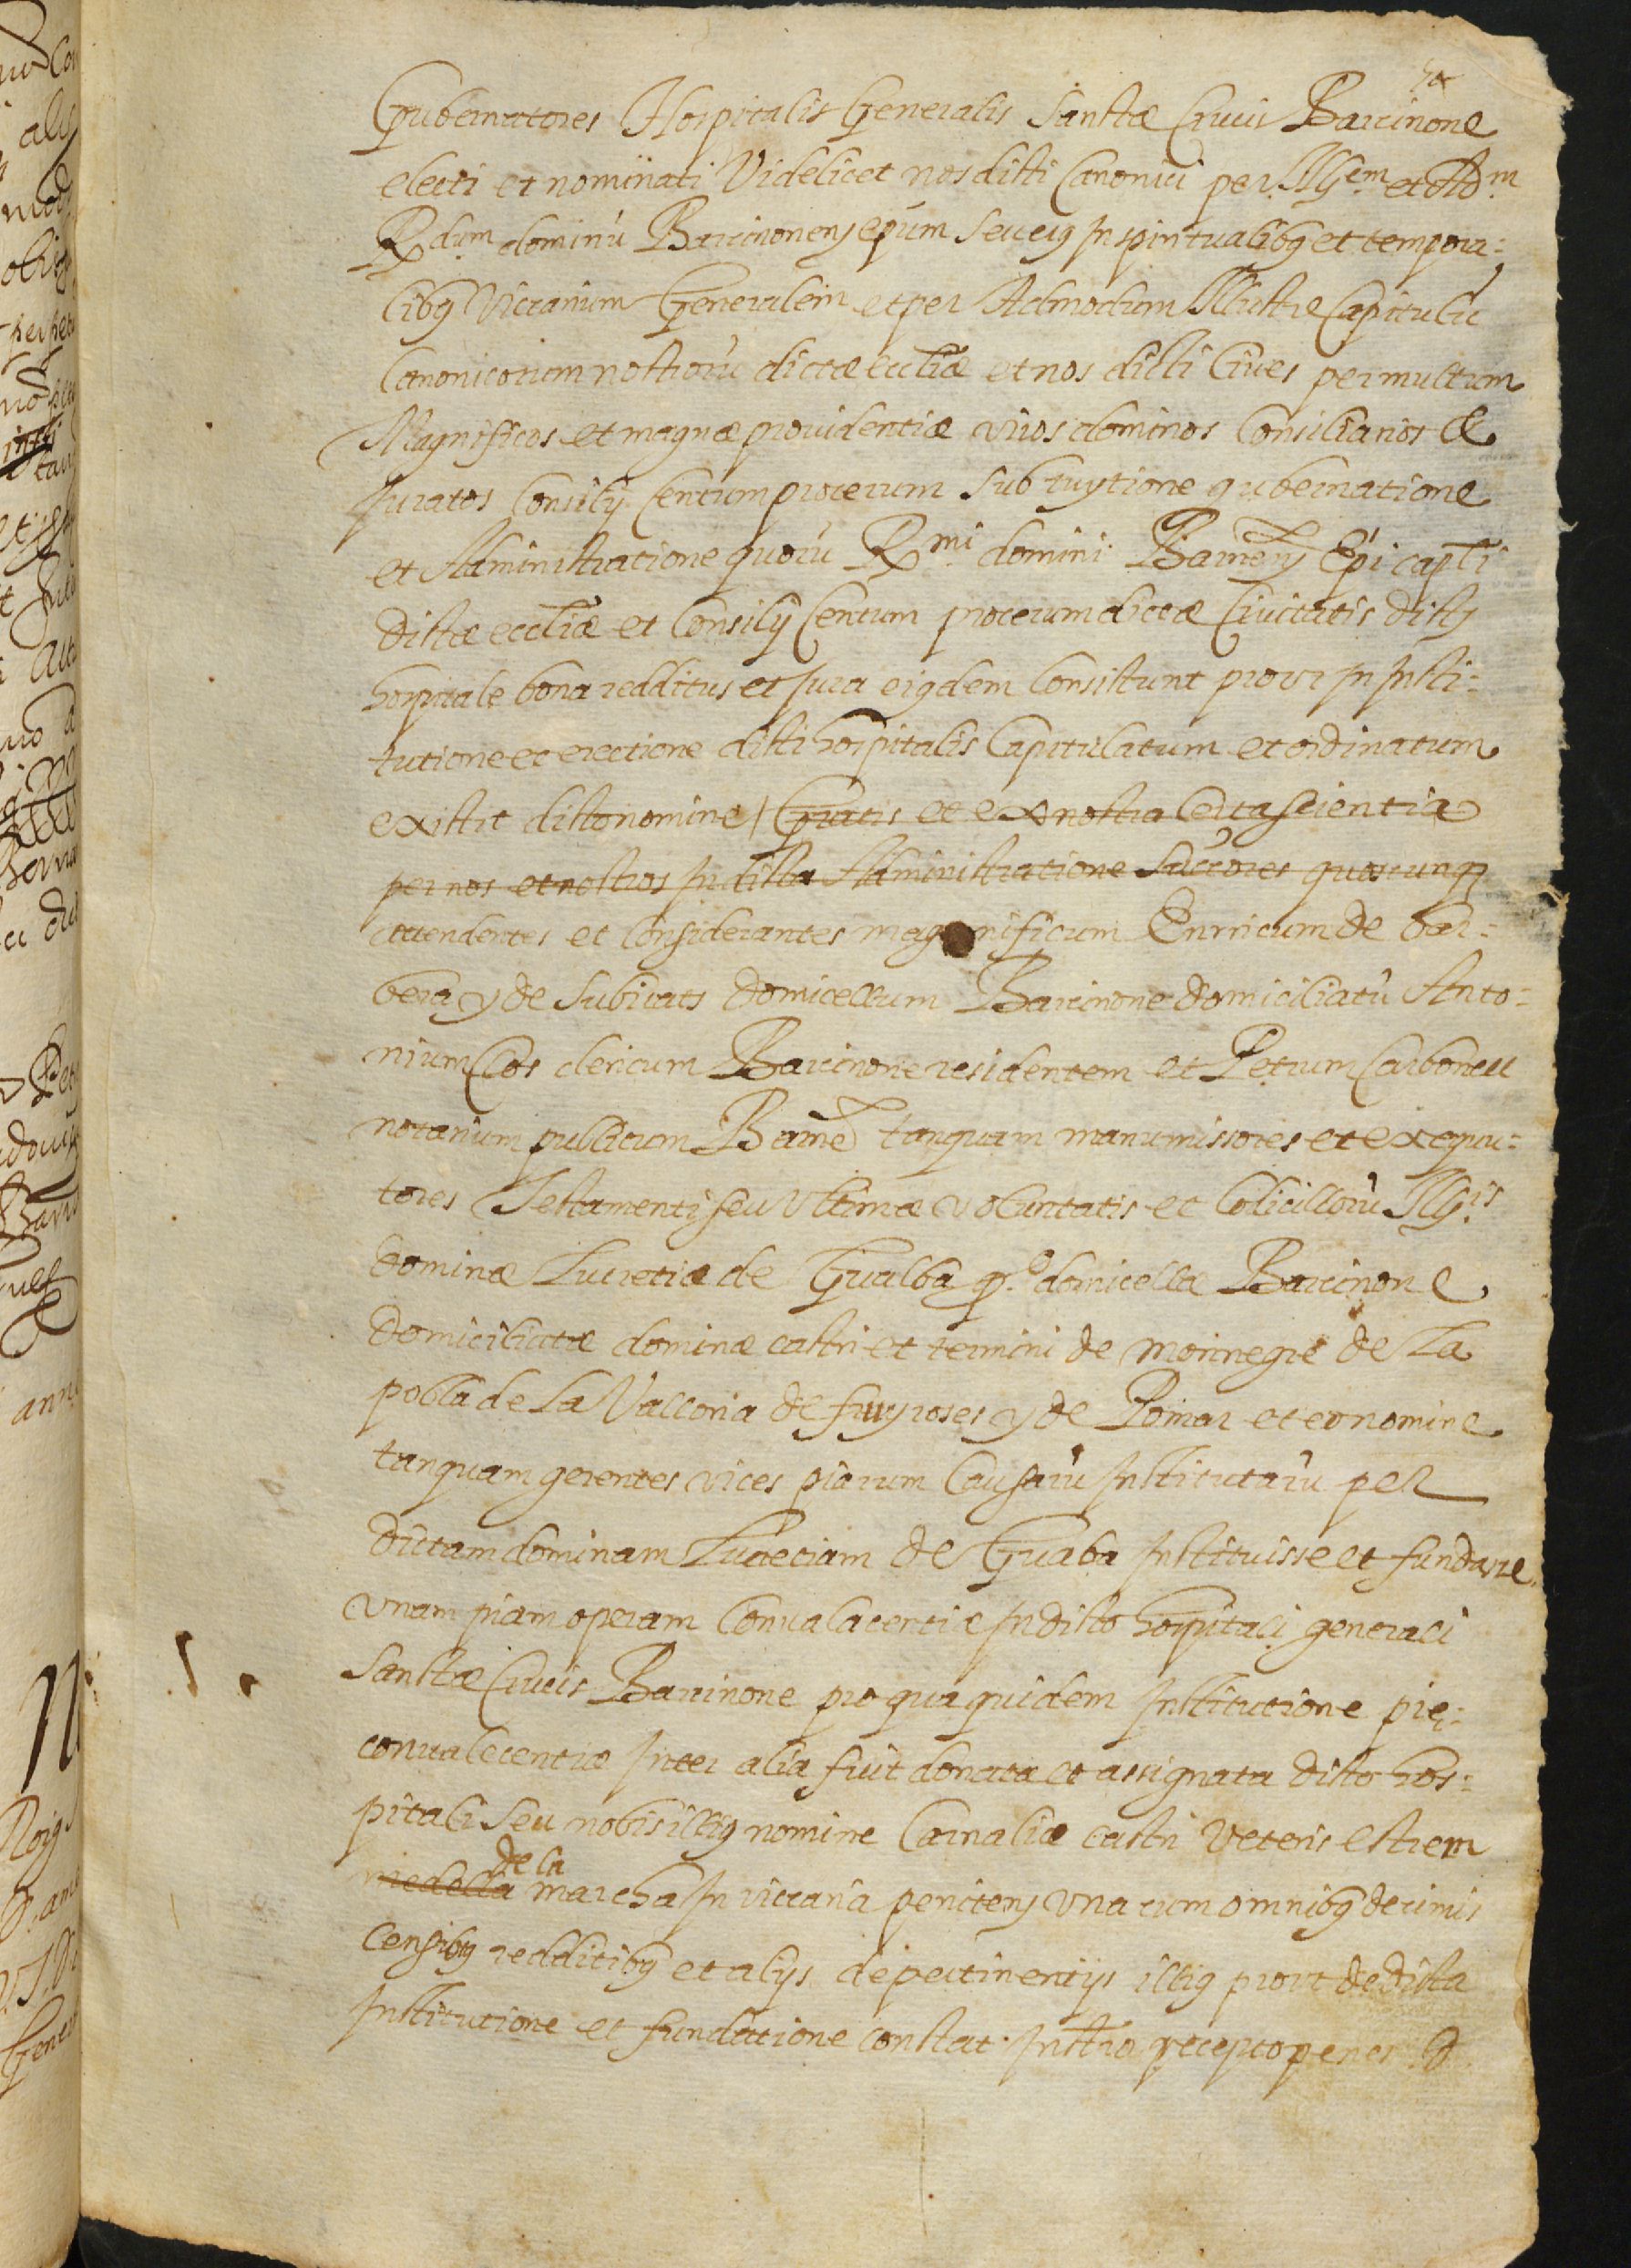 Gubernatores Hospitalis Generalis Sanctæ Crucis Barcinone
electi et nominati Videlicet nos dicti Canonici per Illem et Adm
Rdum dominū Barcinonens epūm seu eiꝰ in spiritualibꝫ et tempora:
libꝫ Vicarium Generalem et per Admodum Illustre Capitulū
Canonicorum nostrorū dictæ eccliæ et nos dicti Cives per multum
Magnificos et magnæ providentiæ viros dominos Consiliarios &
Juratos Consilij Centum procerum sub tuytione gubernatione
et Administratione quorū Rmi domini Barcnens Epi capli
dictæ eccliæ et Consilij Centum procerum dictæ Civitatis dictū
hospitale bona redditus et jura eiꝰdem Consistunt prout in insti:
tutione et erectione dicti hospitalis Capitulatum et ordinatum
existit dicto nomine / Gratis et ex nostra Certa scientia
per nos et nostros in dicta Administratione Succores quoscunqꝫ
attendentes et Considerantes magnificum Enrricum de bar:
bera y de Subirats domicellum Barcinone domiciliatū Anto:
nium Cos clericum Barcinone residentem et Petrum Carbonell
notarium publicum Barcne tanquam manumissores et exequu:
tores Testamenti seu Vltimæ voluntatis et Codicillorū Illis
dominæ Lucretiæ de Gualba qº domicellæ Barcinone
domiciliatæ dominæ castri et termini de Montnegre de La
pobla de La Valloria de fuyroses y de Pomar et eo nomine
tanquam gerentes vices piarum Causarū Institutarū per
dictam dominam Lucretiam de Guaba Instituisse et fundasse
vnam piam operam Convalacentiæ in dicto hospitali generali
Sanctæ Crucis Barcinone pro qua quidem Institutione pię
convalecentiæ inter alia fuit donata et assignata dicto hos:
pitali seu nobis illiꝰ nomine Carnaliæ castri Veteris estrem
de la
marcha in vicaria penitens vna cum omnibꝫ decimis
Censibꝫ redditibꝫ et alijs de pertinentijs illiꝰ prout de dicta
Institutione et fundatione constat Instro recepto penes D.